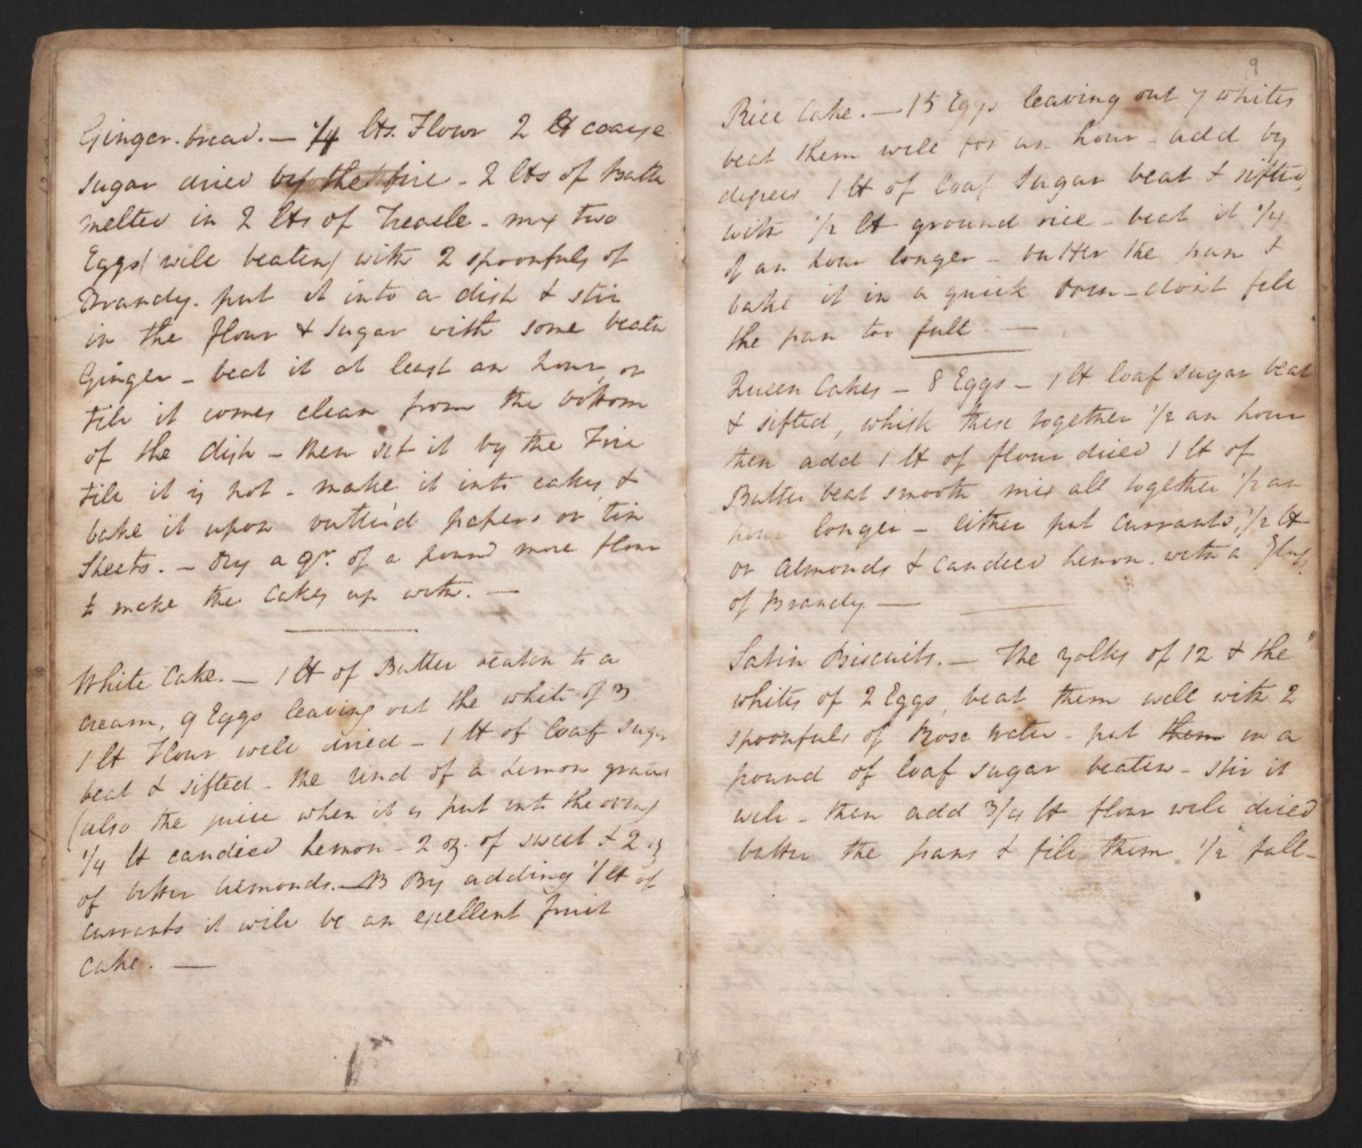 Ginger-bread. — 1/4 lbs. Flour 2 lb coarse
sugar dried by the fire - 2 lbs of Butter
melted in 2 lbs of Treacle - mix two
Eggs (well beaten) with 2 spoonfuls of
Brandy. put it into a dish & stir
in the flour & sugar with some beaten
Ginger - beat it at least an hour, or
till it comes clean from the bottom
of the dish - then set it by the Fire
till it is hot - make it into cakes &
bake it upon butter'd papers or tin
Sheets. - Dry a qr. of a pound more flour
to make the Cakes up with. —
White Cake. — 1 lb of Butter beaten to a
cream, 9 Eggs leaving out the white of 3
1 lb Flour well dried - 1 lb of loaf sugar
beat & sifted - the rind of a Lemon grated
(also the juice when it is put into the oven)
1/4 lb candied Lemon - 2 oz. of sweet & 2 oz
of bitter Almonds. — NB By adding 1 lb of
currants it will be an excellent fruit
Cake. —
9
Rice Cake. — 15 Eggs leaving out 7 whites
beat them well for an hour - add by
degrees 1 lb of loaf sugar beat & sifted,
with 1/2 lb ground rice - beat it 1/4
of an hour longer - butter the pan &
bake it in a quick Oven - don't fill
the pan too full —
Queen Cakes - 8 Eggs - 1 lb loaf sugar beat
& sifted, whisk these together 1/2 an hour
then add 1 lb of flour dried 1 lb of
Butter beat smooth mix all together 1/2 an
hour longer - either put currants, 1/2 lb
or Almonds & candied Lemon - with a Glass
of Brandy —
Satin Biscuits. — The yolks of 12 & the
whites of 2 Eggs, beat them well with 2
spoonfuls of Rose Water - put them in a
pound of loaf sugar beaten - stir it
well - then add 3/4 lb flour well dried
butter the pans & fill them 1/2 full -